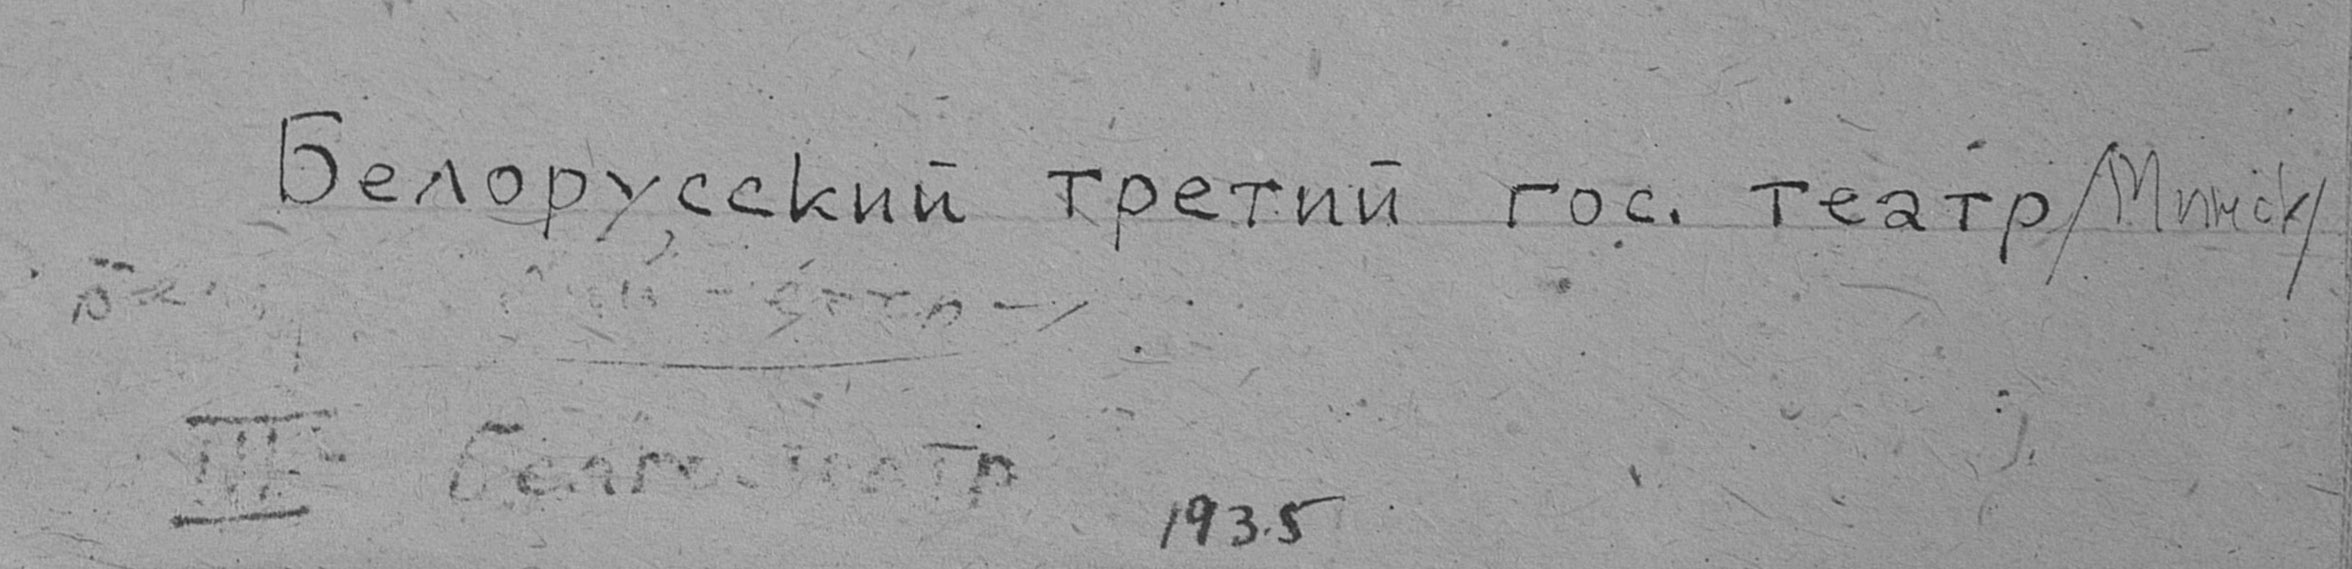 Белорусский третий гос. театр /Минск/
III Белгостеатр
1935